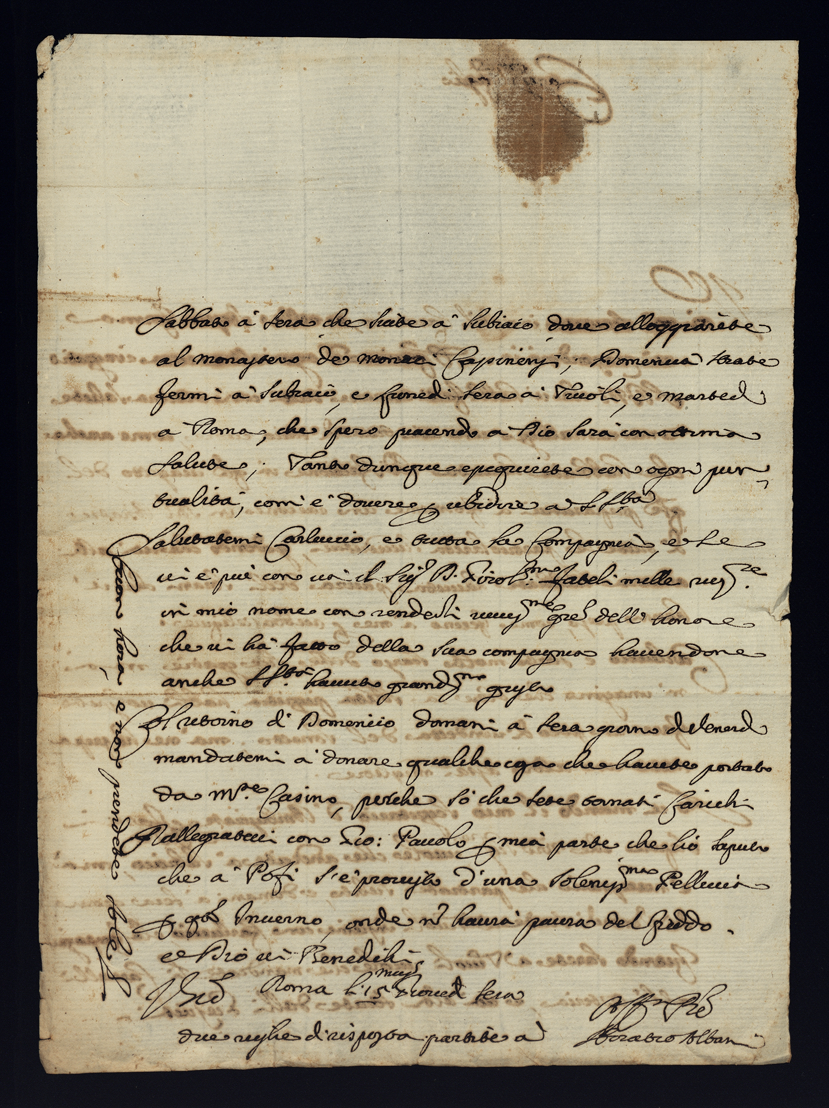 Sabbato à sera che siate à Subiaco dove alloggiarete
al monastero de monaci Capinensi, Domenica state
fermi à Subiaco, e lunedì sera à Tivoli, e martedì
à Roma, che spero piacendo à Dio sarà con ottima
salute; Tanto dunque eseguirete con ogni pun-
tualità, com' è dovere p ubidire a S. Sta
Salutatemi Carluccio, e tutta la Compagnia, e se
vi è più con voi il Sigr D. mille
in mio nome con renderli dell' honore
che vi hà fatto della sua compagnia havendone
anche S. Sta havuto grandma gusto
Al ritorno di Domenico domani à sera giorno di Venerdì
mandatemi à donare qualche cosa che havete portato
da Mte Casino, perche sò che sete tornati Carichi
Rallegratevi con Gio: Pauolo p mia parte che hò saputo
che à Pofi s'è provisto d'una solenissma Pelliccia
p qsto Inverno, onde n haurà paura del freddo.
e Dio vi Benedichi
Roma li 15 Giovedì sera
Affmo Pre
due righe di risposta partite à
Horatio Albani
buon hora, e non prendete